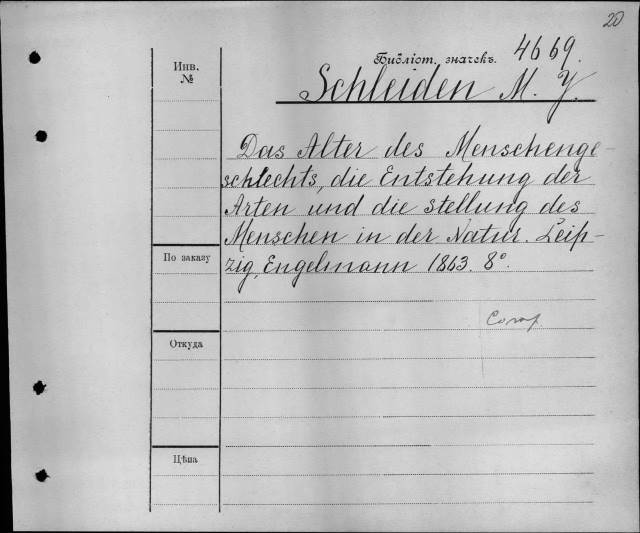 20
Библіот. значекъ. 4669.
Инв.
№
Schleiden M. J.
Das Alter des Menschenge-
schlechts, die Entstehung der
Arten und die Stellung des
Menschen in der Natur. Leip-
zig, Engelmann 1863. 8°.
По заказу
Откуда
Цѣна